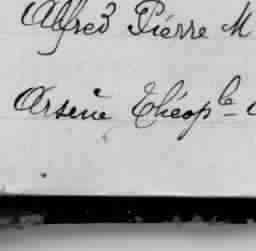 Alfred Pierre M
Arsène Théople